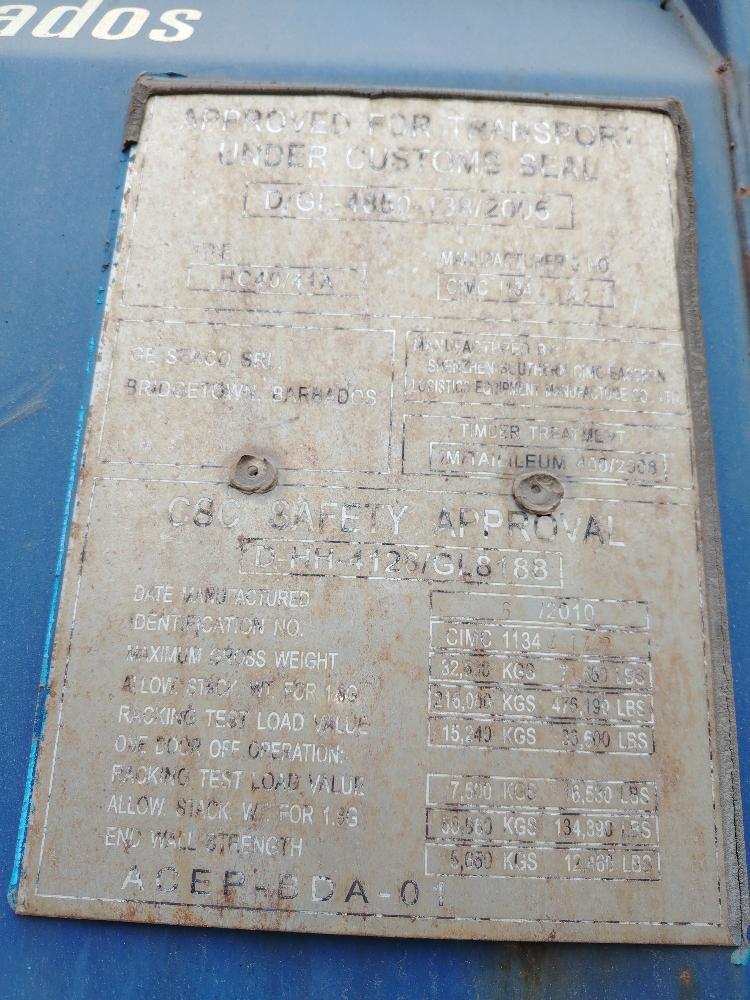 ados
APPROVED FOR TRANSPORT
UNDER CUSTOMS SEAL
D/GL-4850-138/2006
TYPE
MANUFACTURER'S NO.
HC40/41A
CIMC 1134
GE SEACO SRL,
BRIDGETOWN, BARBADOS
MANUFACTURED BY:
SHENZHEN SOUTHERN CIMC EASTERN
LOGISTICS EQUIPMENT MANUFACTURE CO., LTD
TIMBER TREATMENT
CSC SAFETY APPROVAL
D-HH-4126/GL8188
DATE MANUFACTURED
/2010
IDENTIFICATION NO.
CIMC 1134
MAXIMUM GROSS WEIGHT
KGS LBS
ALLOW. STACK. WT. FOR 1.8G
KGS 476,190 LBS
RACKING TEST LOAD VALUE
15,240 KGS 33,600 LBS
ONE DOOR OFF OPERATION:
RACKING TEST LOAD VALUE
KGS LBS
ALLOW. STACK. WT. FOR 1.8G
KGS 134,390 LBS
END WALL STRENGTH
KGS LBS
ACEP-BDA-01